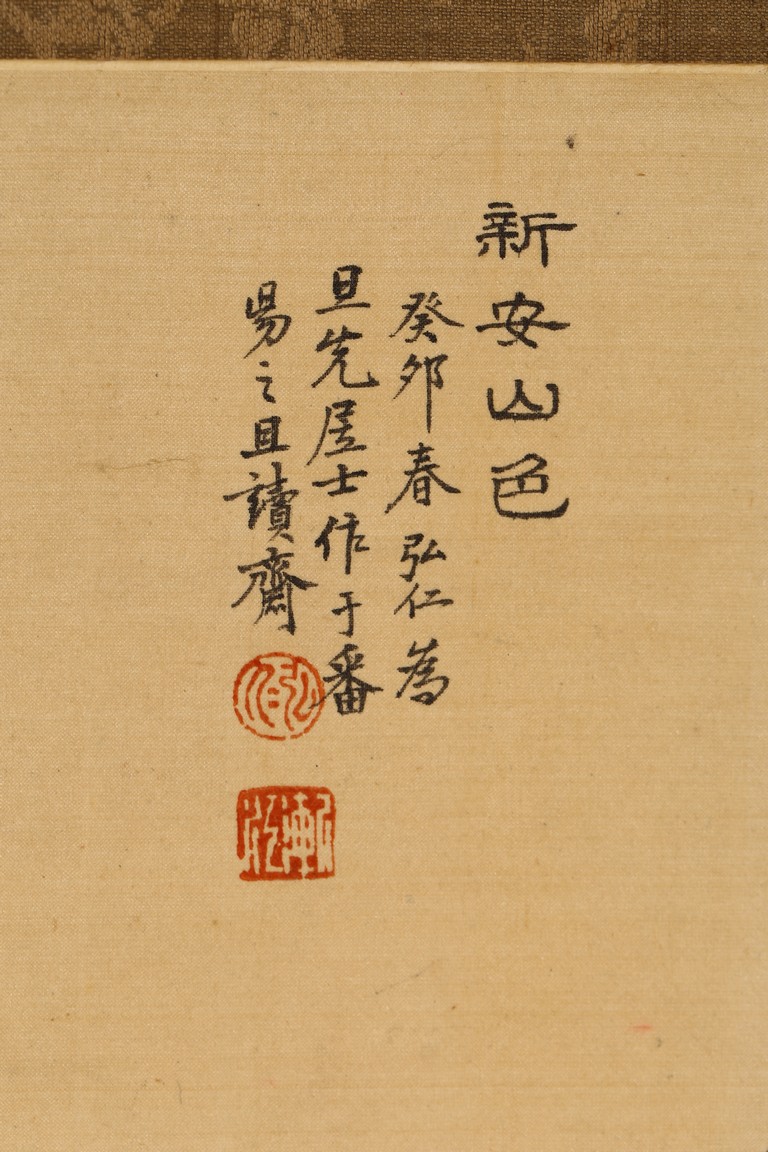 新安山色
癸卯春弘仁為
旦先居士作于番
昜之且讀齋
弘仁
漸江